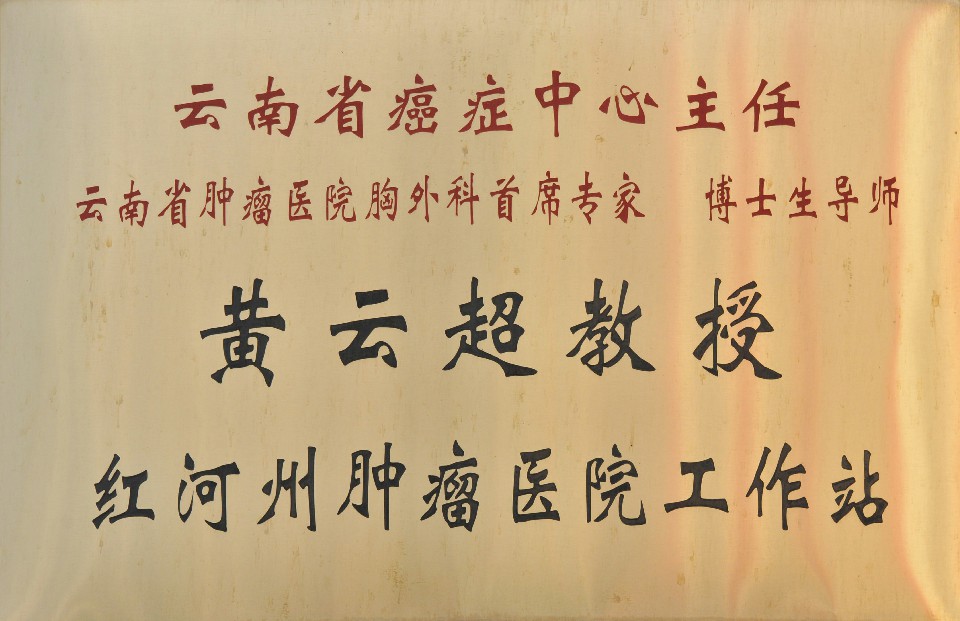 云南省癌症中心主任
云南省肿瘤医院胸外科首席专家 博士生导师
黄云超教授
红河州肿瘤医院工作站